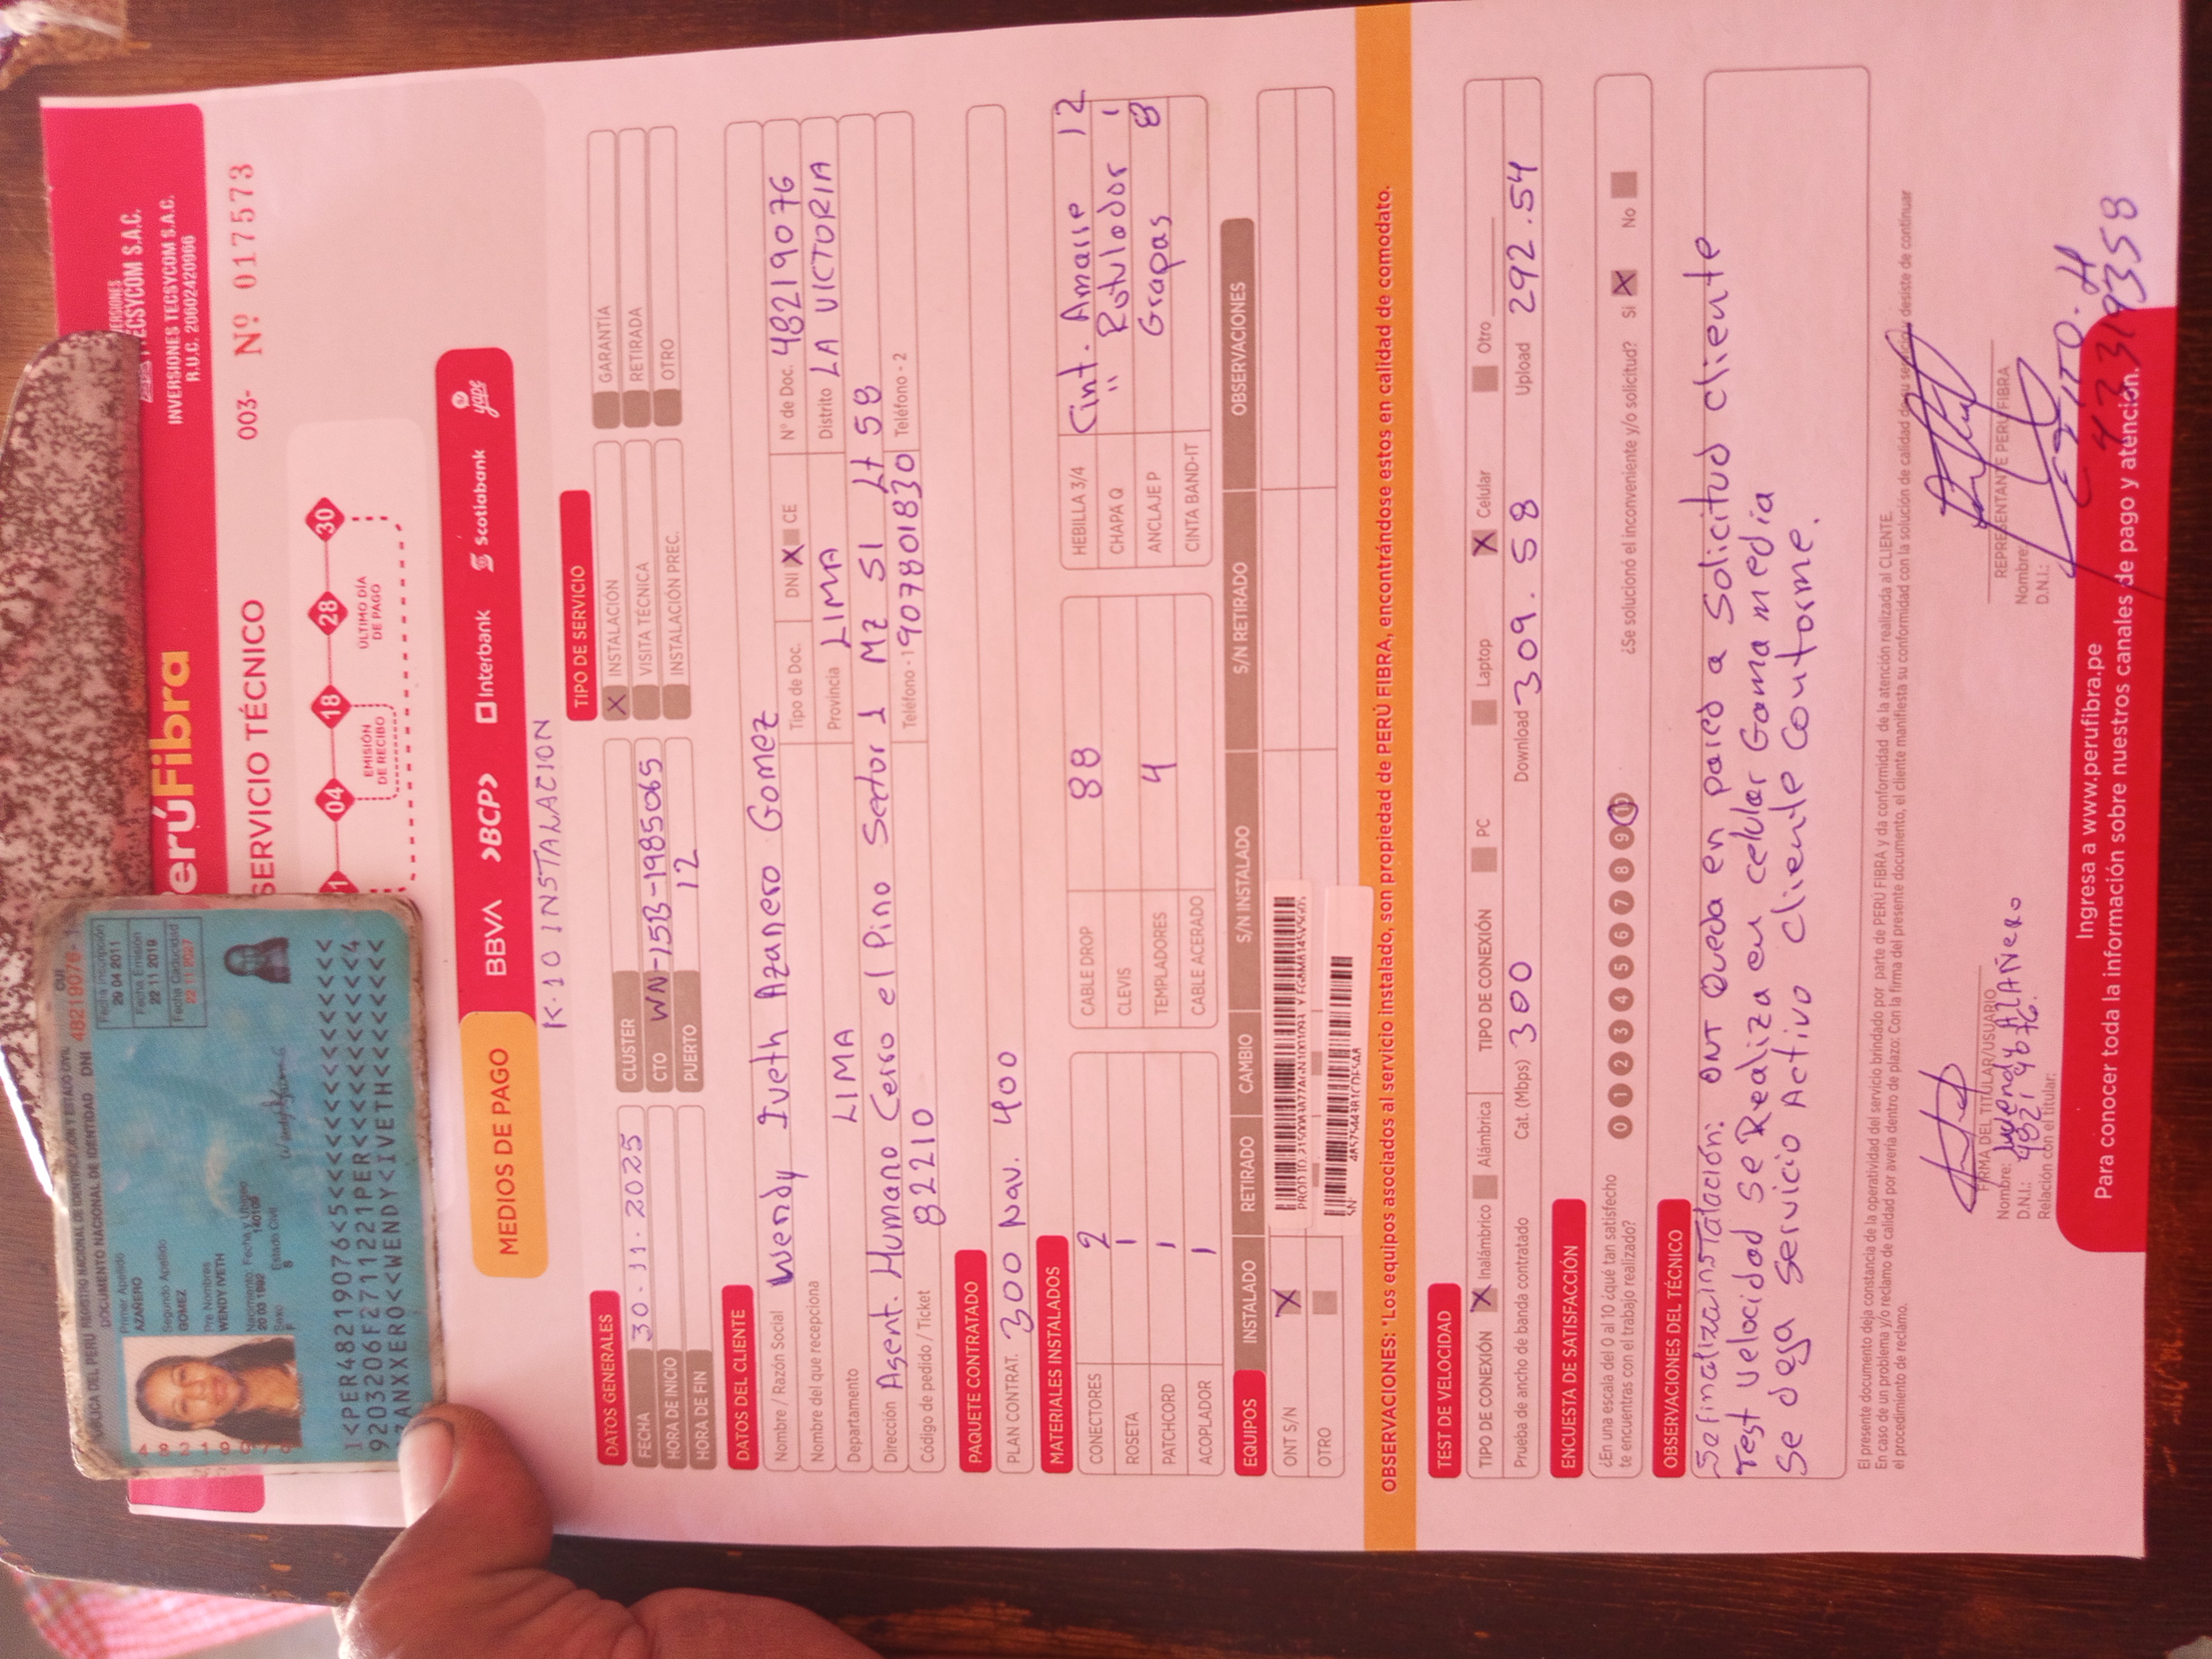 REPÚBLICA DEL PERÚ REGISTRO NACIONAL DE IDENTIFICACIÓN Y ESTADO CIVIL
DOCUMENTO NACIONAL DE IDENTIDAD DNI
CUI
48219076-
Primer Apellido
AZAÑERO
Segundo Apellido
GOMEZ
Pre Nombres
WENDY IVETH
Nacimiento Fecha y Ubigeo
20 03 1992 140109
Sexo Estado Civil
F S
Fecha Inscripción
29 04 2011
Fecha Emisión
22 11 2019
Fecha Caducidad
22 11 2027
I<PER48219076<5<<<<<<<<<<<<<<<
9203206F2711221PER<<<<<<<<<<<4
AZANXXERO<<WENDY<IVETH<<<<<<<<
PerúFibra
INVERSIONES
TECSYCOM S.A.C.
INVERSIONES TECSYCOM S.A.C.
R.U.C. 20602420066
SERVICIO TÉCNICO
003- Nº 017573
04 18 28 30
EMISIÓN DE RECIBO
ÚLTIMO DÍA DE PAGO
MEDIOS DE PAGO BBVA >BCP> Interbank Scotiabank yape
K-10 INSTALACION
DATOS GENERALES
FECHA 30-11-2025
HORA DE INICIO
HORA DE FIN
CLUSTER
CTO WN-15B-1985065
PUERTO 12
TIPO DE SERVICIO
X INSTALACIÓN GARANTÍA
VISITA TÉCNICA RETIRADA
INSTALACIÓN PREC. OTRO
DATOS DEL CLIENTE
Nombre / Razón Social Wendy Iveth Azanero Gomez
Tipo de Doc. DNI X CE Nº de Doc. 48219076
Nombre del que recepciona
Departamento LIMA Provincia LIMA Distrito LA VICTORIA
Dirección Asent. Humano Cerro el Pino Sector 1 Mz S1 Lt 58
Código de pedido / Ticket 82210 Teléfono - 1 907801830 Teléfono - 2
PAQUETE CONTRATADO
PLAN CONTRAT. 300 Nav. 400
MATERIALES INSTALADOS
CONECTORES 2 CABLE DROP 88 HEBILLA 3/4 Cint. Amarre 12
ROSETA 1 CLEVIS CHAPA Q " Rotulodor 1
PATCHCORD 1 TEMPLADORES 4 ANCLAJE P Grapas 8
ACOPLADOR 1 CABLE ACERADO CINTA BAND-IT
EQUIPOS INSTALADO RETIRADO CAMBIO S/N INSTALADO S/N RETIRADO OBSERVACIONES
ONT S/N X
OTRO
SN:
OBSERVACIONES: *Los equipos asociados al servicio instalado, son propiedad de PERÚ FIBRA, encontrándose estos en calidad de comodato.
TEST DE VELOCIDAD
TIPO DE CONEXIÓN X Inalámbrico Alámbrica TIPO DE CONEXIÓN PC Laptop X Celular Otro
Prueba de ancho de banda contratado Cat. (Mbps) 300 Download 309.58 Upload 292.54
ENCUESTA DE SATISFACCIÓN
¿En una escala del 0 al 10 ¿qué tan satisfecho
te encuentras con el trabajo realizado?
0 1 2 3 4 5 6 7 8 9 10
¿Se solucionó el inconveniente y/o solicitud? Si X No
OBSERVACIONES DEL TÉCNICO
Se finaliza instalación: ONT Queda en pared a Solicitud cliente
Test velocidad se Realiza en celular Gama media
Se deja Servicio Activo cliente Conforme.
El presente documento deja constancia de la operatividad del servicio brindado por parte de PERÚ FIBRA y da conformidad de la atención realizada al CLIENTE.
En caso de un problema y/o reclamo de calidad por avería dentro de plazo: Con la firma del presente documento, el cliente manifiesta su conformidad con la solución de calidad de su servicio y desiste de continuar
el procedimiento de reclamo.
FIRMA DEL TITULAR/USUARIO
Nombre: Wendy AZAÑERO
D.N.I.: 48219076.
Relación con el titular:
REPRESENTANTE PERÚ FIBRA
Nombre:
D.N.I.:
Ingresa a www.perufibra.pe
Para conocer toda la información sobre nuestros canales de pago y atención.